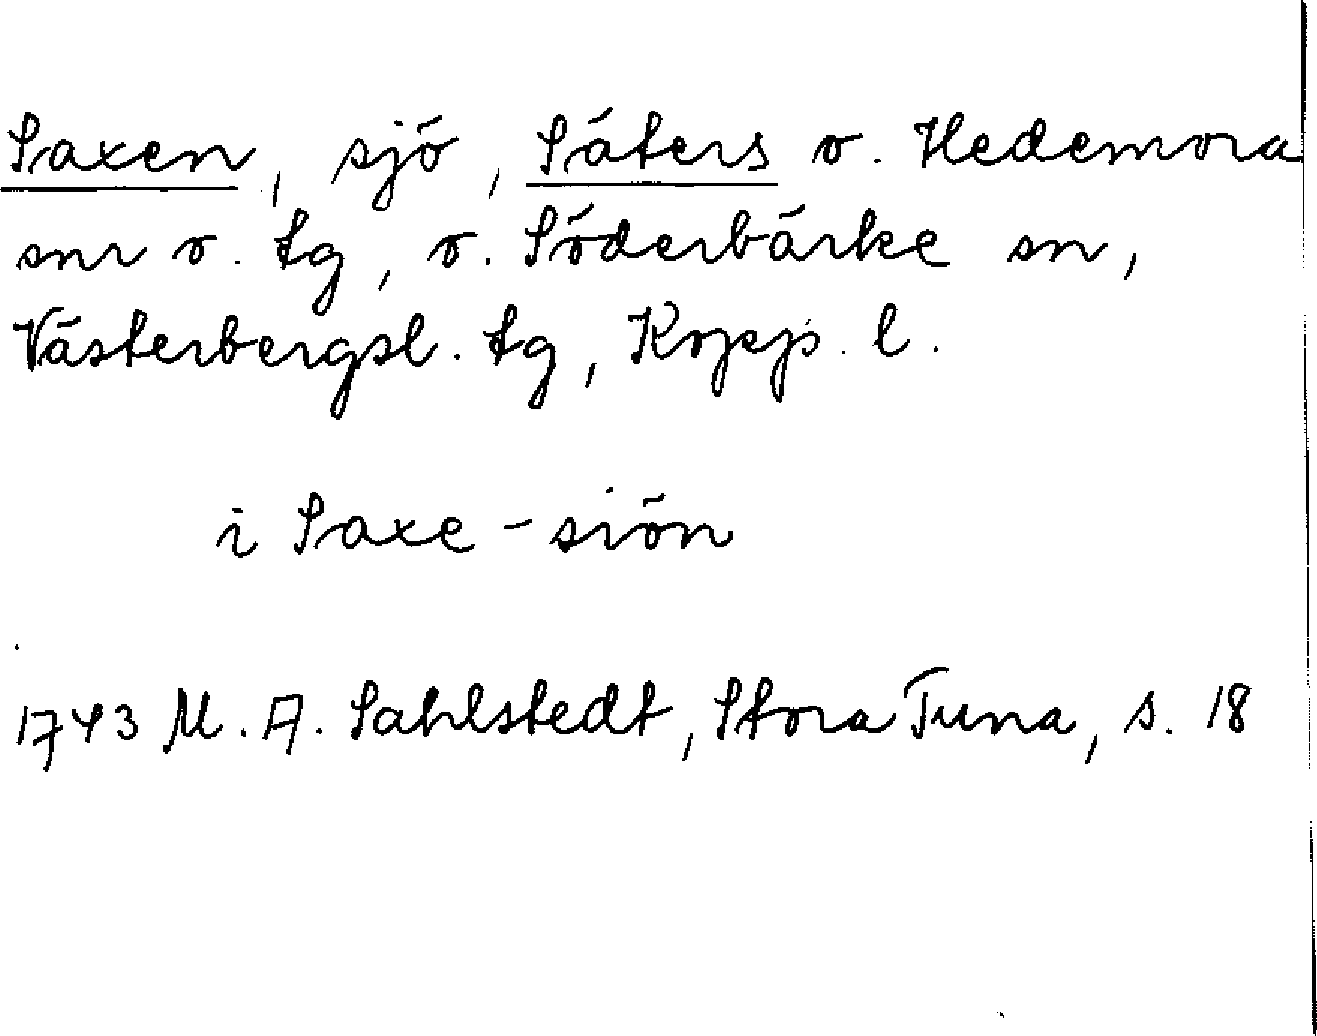 Saxen, sjö, Säters o. Hedemora
snr o. tg, o. Söderbärke sn,
Västerbergsl. tg, Kopp. l.
i Saxe-siön
1743 M. A. Sahlstedt, Stora Tuna, s. 18